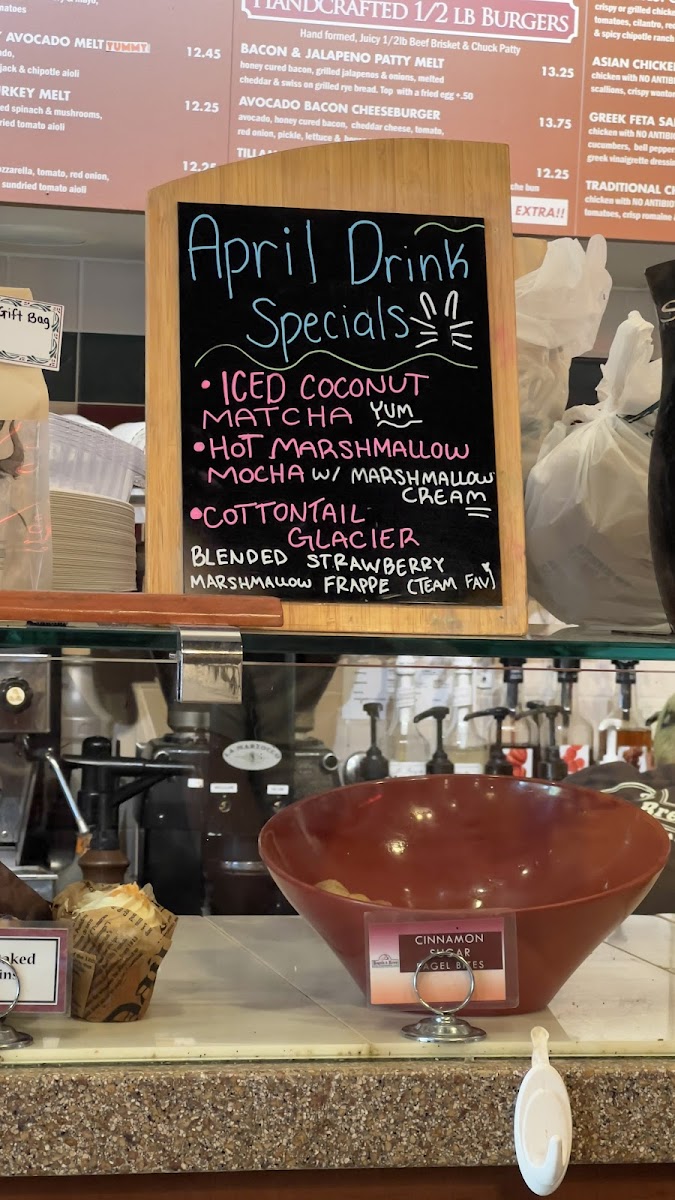 HANDCRAFTED 1/2 LB BURGERS
Hand formed, Juicy 1/2lb Beef Brisket & Chuck Patty
AVOCADO MELT YUMMY 12.45
jack & chipotle aioli
MELT 12.25
spinach & mushrooms,
tomato aioli
12.25
tomato, red onion,
sundried tomato aioli
BACON & JALAPENO PATTY MELT 13.25
honey cured bacon, grilled jalapenos & onions, melted
cheddar & swiss on grilled rye bread. Top with a fried egg +.50
AVOCADO BACON CHEESEBURGER 13.75
avocado, honey cured bacon, cheddar cheese, tomato,
red onion, pickle, lettuce &
12.25
EXTRA!!
crispy or grilled
tomatoes, cilantro,
& spicy chipotle ranch
ASIAN
chicken with NO
scallions, crispy
GREEK FETA
chicken with NO
cucumbers, bell
greek vinaigrette
TRADITIONAL
chicken with NO
tomatoes, crisp romaine
Gift Bag
April Drink
Specials
• ICED COCONUT
MATCHA YUM
• HOT MARSHMALLOW
MOCHA W/ MARSHMALLOW
CREAM
• COTTONTAIL
GLACIER
BLENDED STRAWBERRY
MARSHMALLOW FRAPPE (TEAM FAV)
LA MARZOCCO
CINNAMON
SUGAR
BAGEL BITES